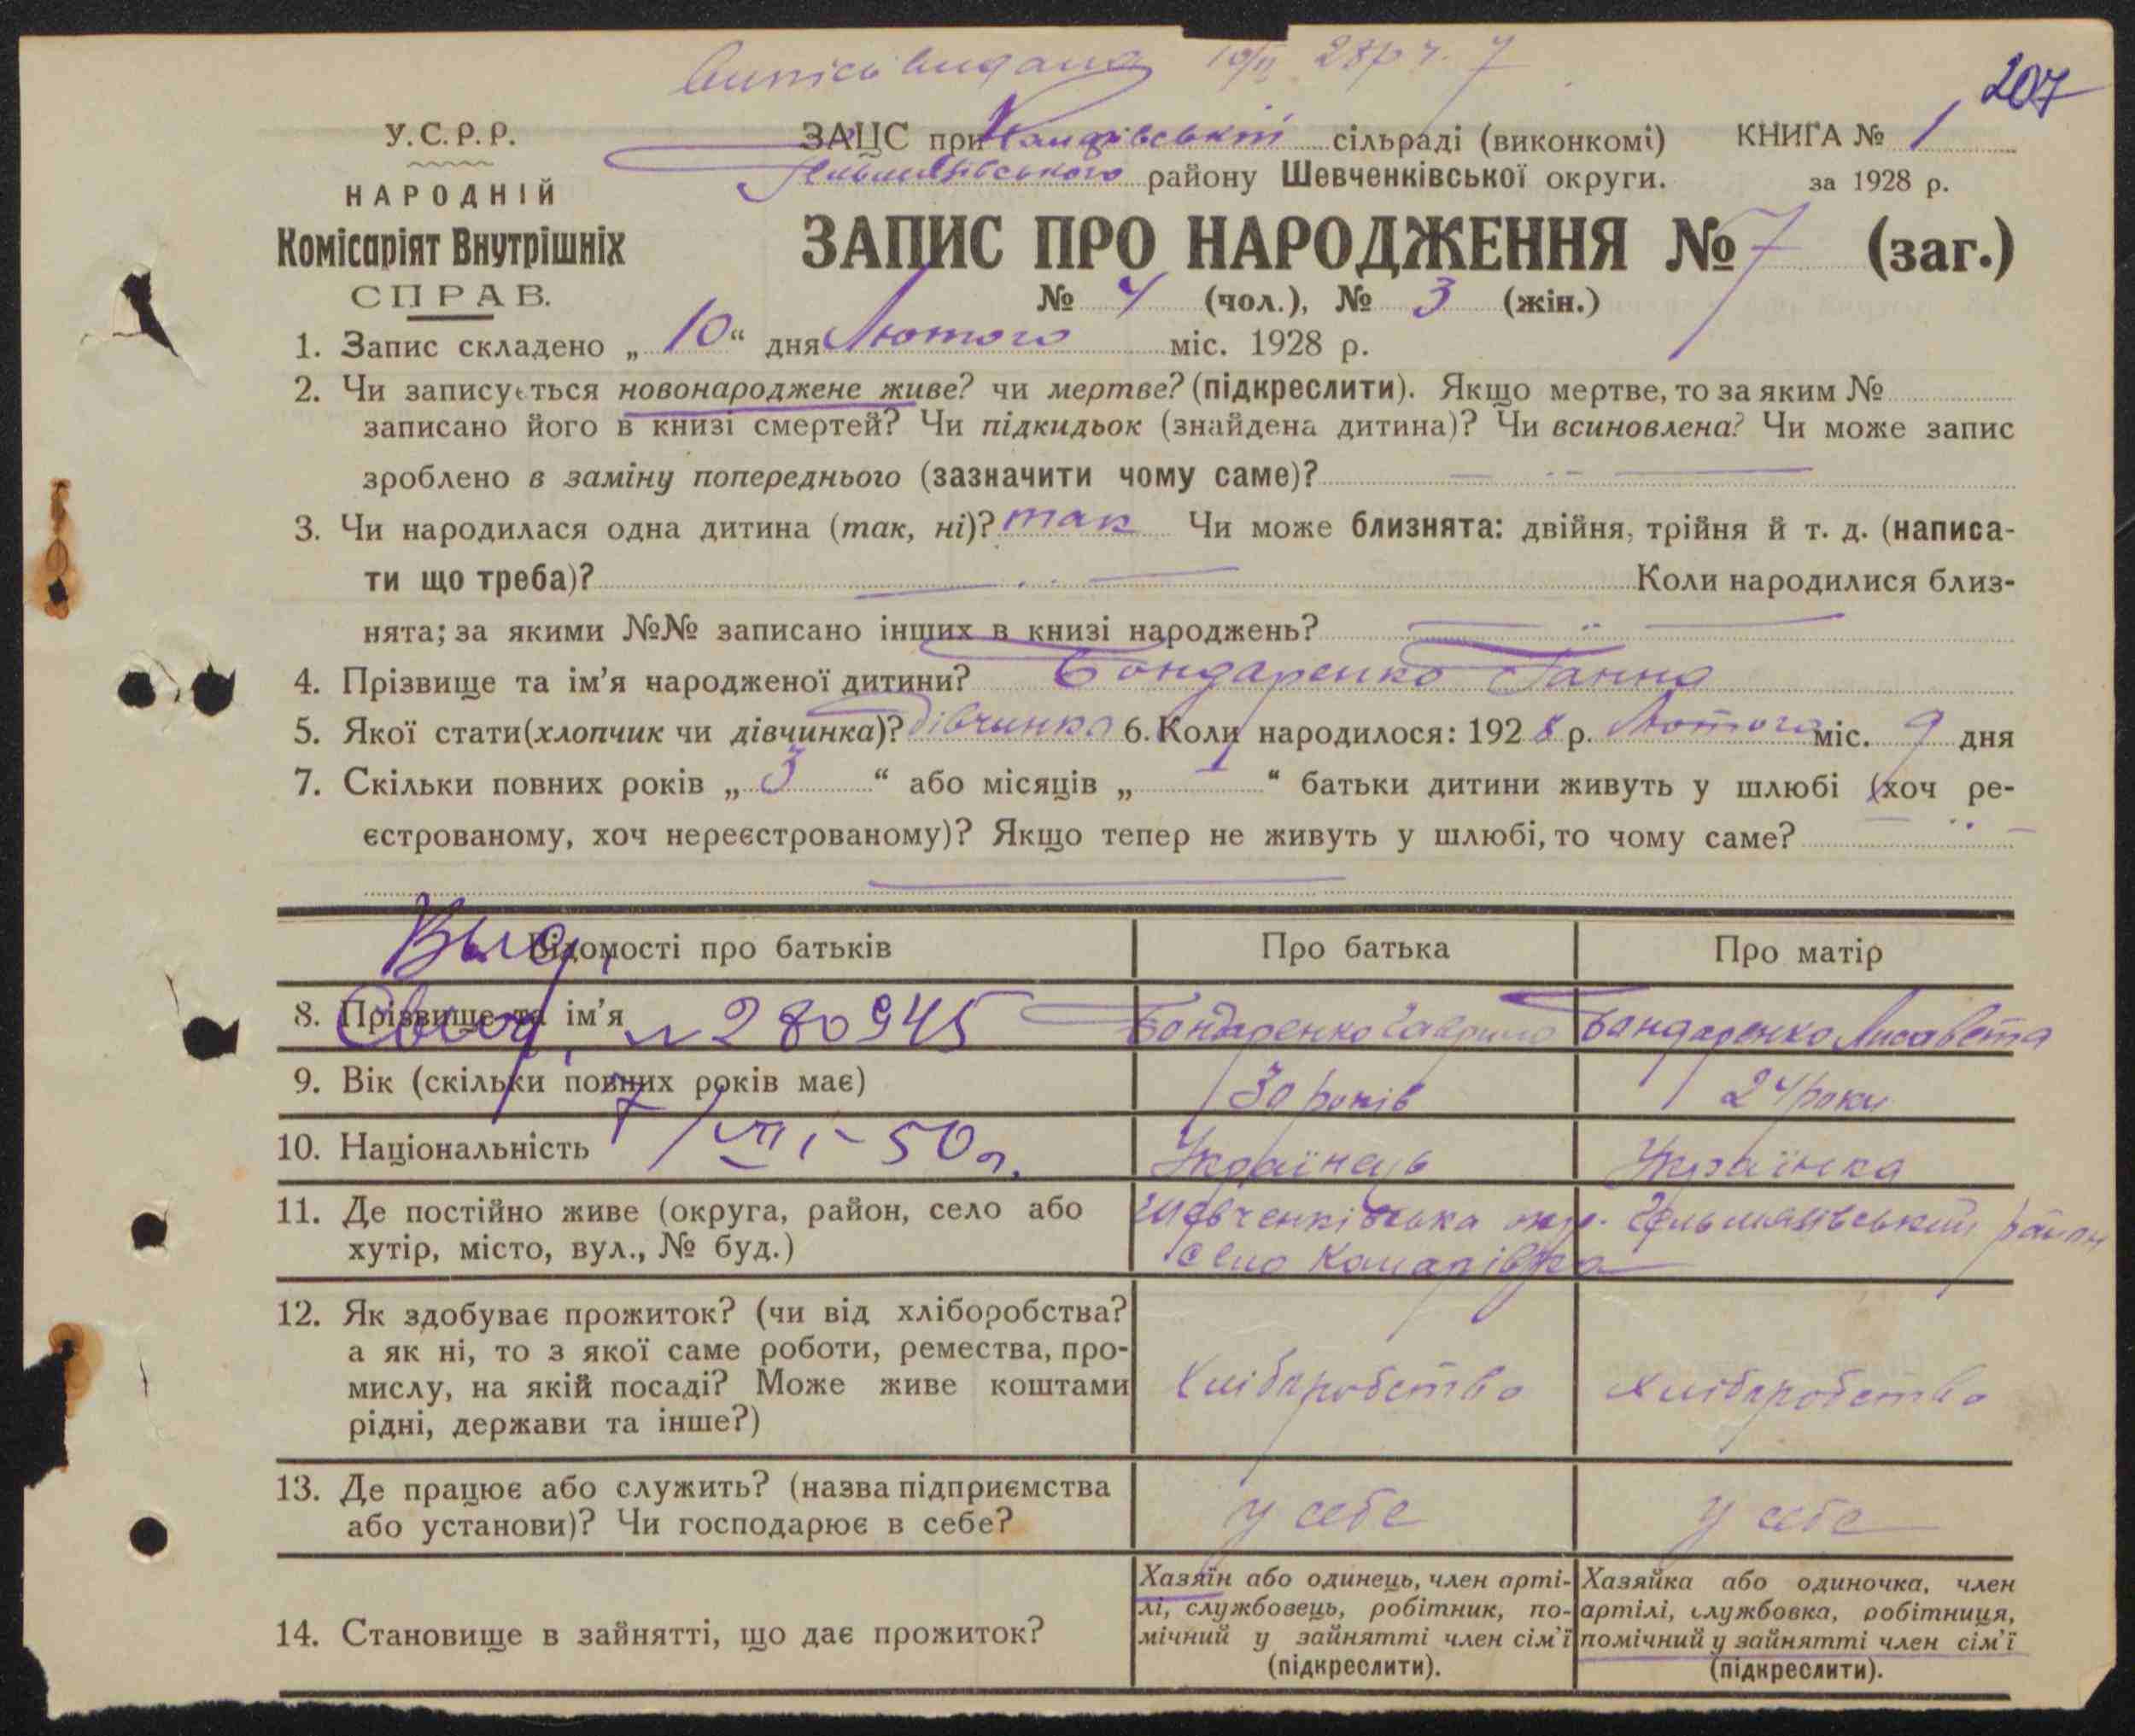 випись видана 10/II 28 р ч. 7
207
У.С.Р.Р.
НАРОДНІЙ
Комісаріят Внутрішніх
СПРАВ.
ЗАЦС при сільраді (виконкомі)
району Шевченківської округи.
КНИГА № 1
за 1928 р.
ЗАПИС ПРО НАРОДЖЕННЯ № 7 (заг.)
№ 4 (чол.), № 3 (жін.)
1. Запис складено „ 10 “ дня Лютого міс. 1928 р.
2. Чи записується новонароджене живе? чи мертве? (підкреслити). Якщо мертве, то за яким №
записано його в книзі смертей? Чи підкидьок (знайдена дитина)? Чи всиновлена? Чи може запис
зроблено в заміну попереднього (зазначити чому саме)?
3. Чи народилася одна дитина (так, ні)? так Чи може близнята: двійня, трійня й т. д. (написа-
ти що треба)? Коли народилися близ-
нята; за якими №№ записано інших в книзі народжень?
4. Прізвище та ім’я народженої дитини? Бондаренко Ганна
5. Якої стати (хлопчик чи дівчинка)? дівчинка 6. Коли народилося: 1928 р. Лютого міс. 9 дня
7. Скільки повних років „ 3 “ або місяців „ “ батьки дитини живуть у шлюбі (хоч ре-
єстрованому, хоч нереєстрованому)? Якщо тепер не живуть у шлюбі, то чому саме?
Выд.
Відомості про батьків Про батька Про матір
8. Прізвище та ім’я Бондаренко Гаврило Бондаренко Лисавета
№ 280945
9. Вік (скільки повних років має) 30 років 24 роки
7/VII - 50 г.
10. Національність Українець Українка
11. Де постійно живе (округа, район, село або Шевченківська окр. район
хутір, місто, вул., № буд.) село Комарівка
12. Як здобуває прожиток? (чи від хліборобства?
а як ні, то з якої саме роботи, ремества, про-
мислу, на якій посаді? Може живе коштами Хліборобство хліборобство
рідні, держави та інше?)
13. Де працює або служить? (назва підприємства
або установи)? Чи господарює в себе? у себе у себе
14. Становище в зайнятті, що дає прожиток?
Хазяїн або одинець, член арті-
лі, службовець, робітник, по-
мічний у зайнятті член сім’ї
(підкреслити).
Хазяйка або одиночка, член
артілі, службовка, робітниця,
помічний у зайнятті член сім’ї
(підкреслити).